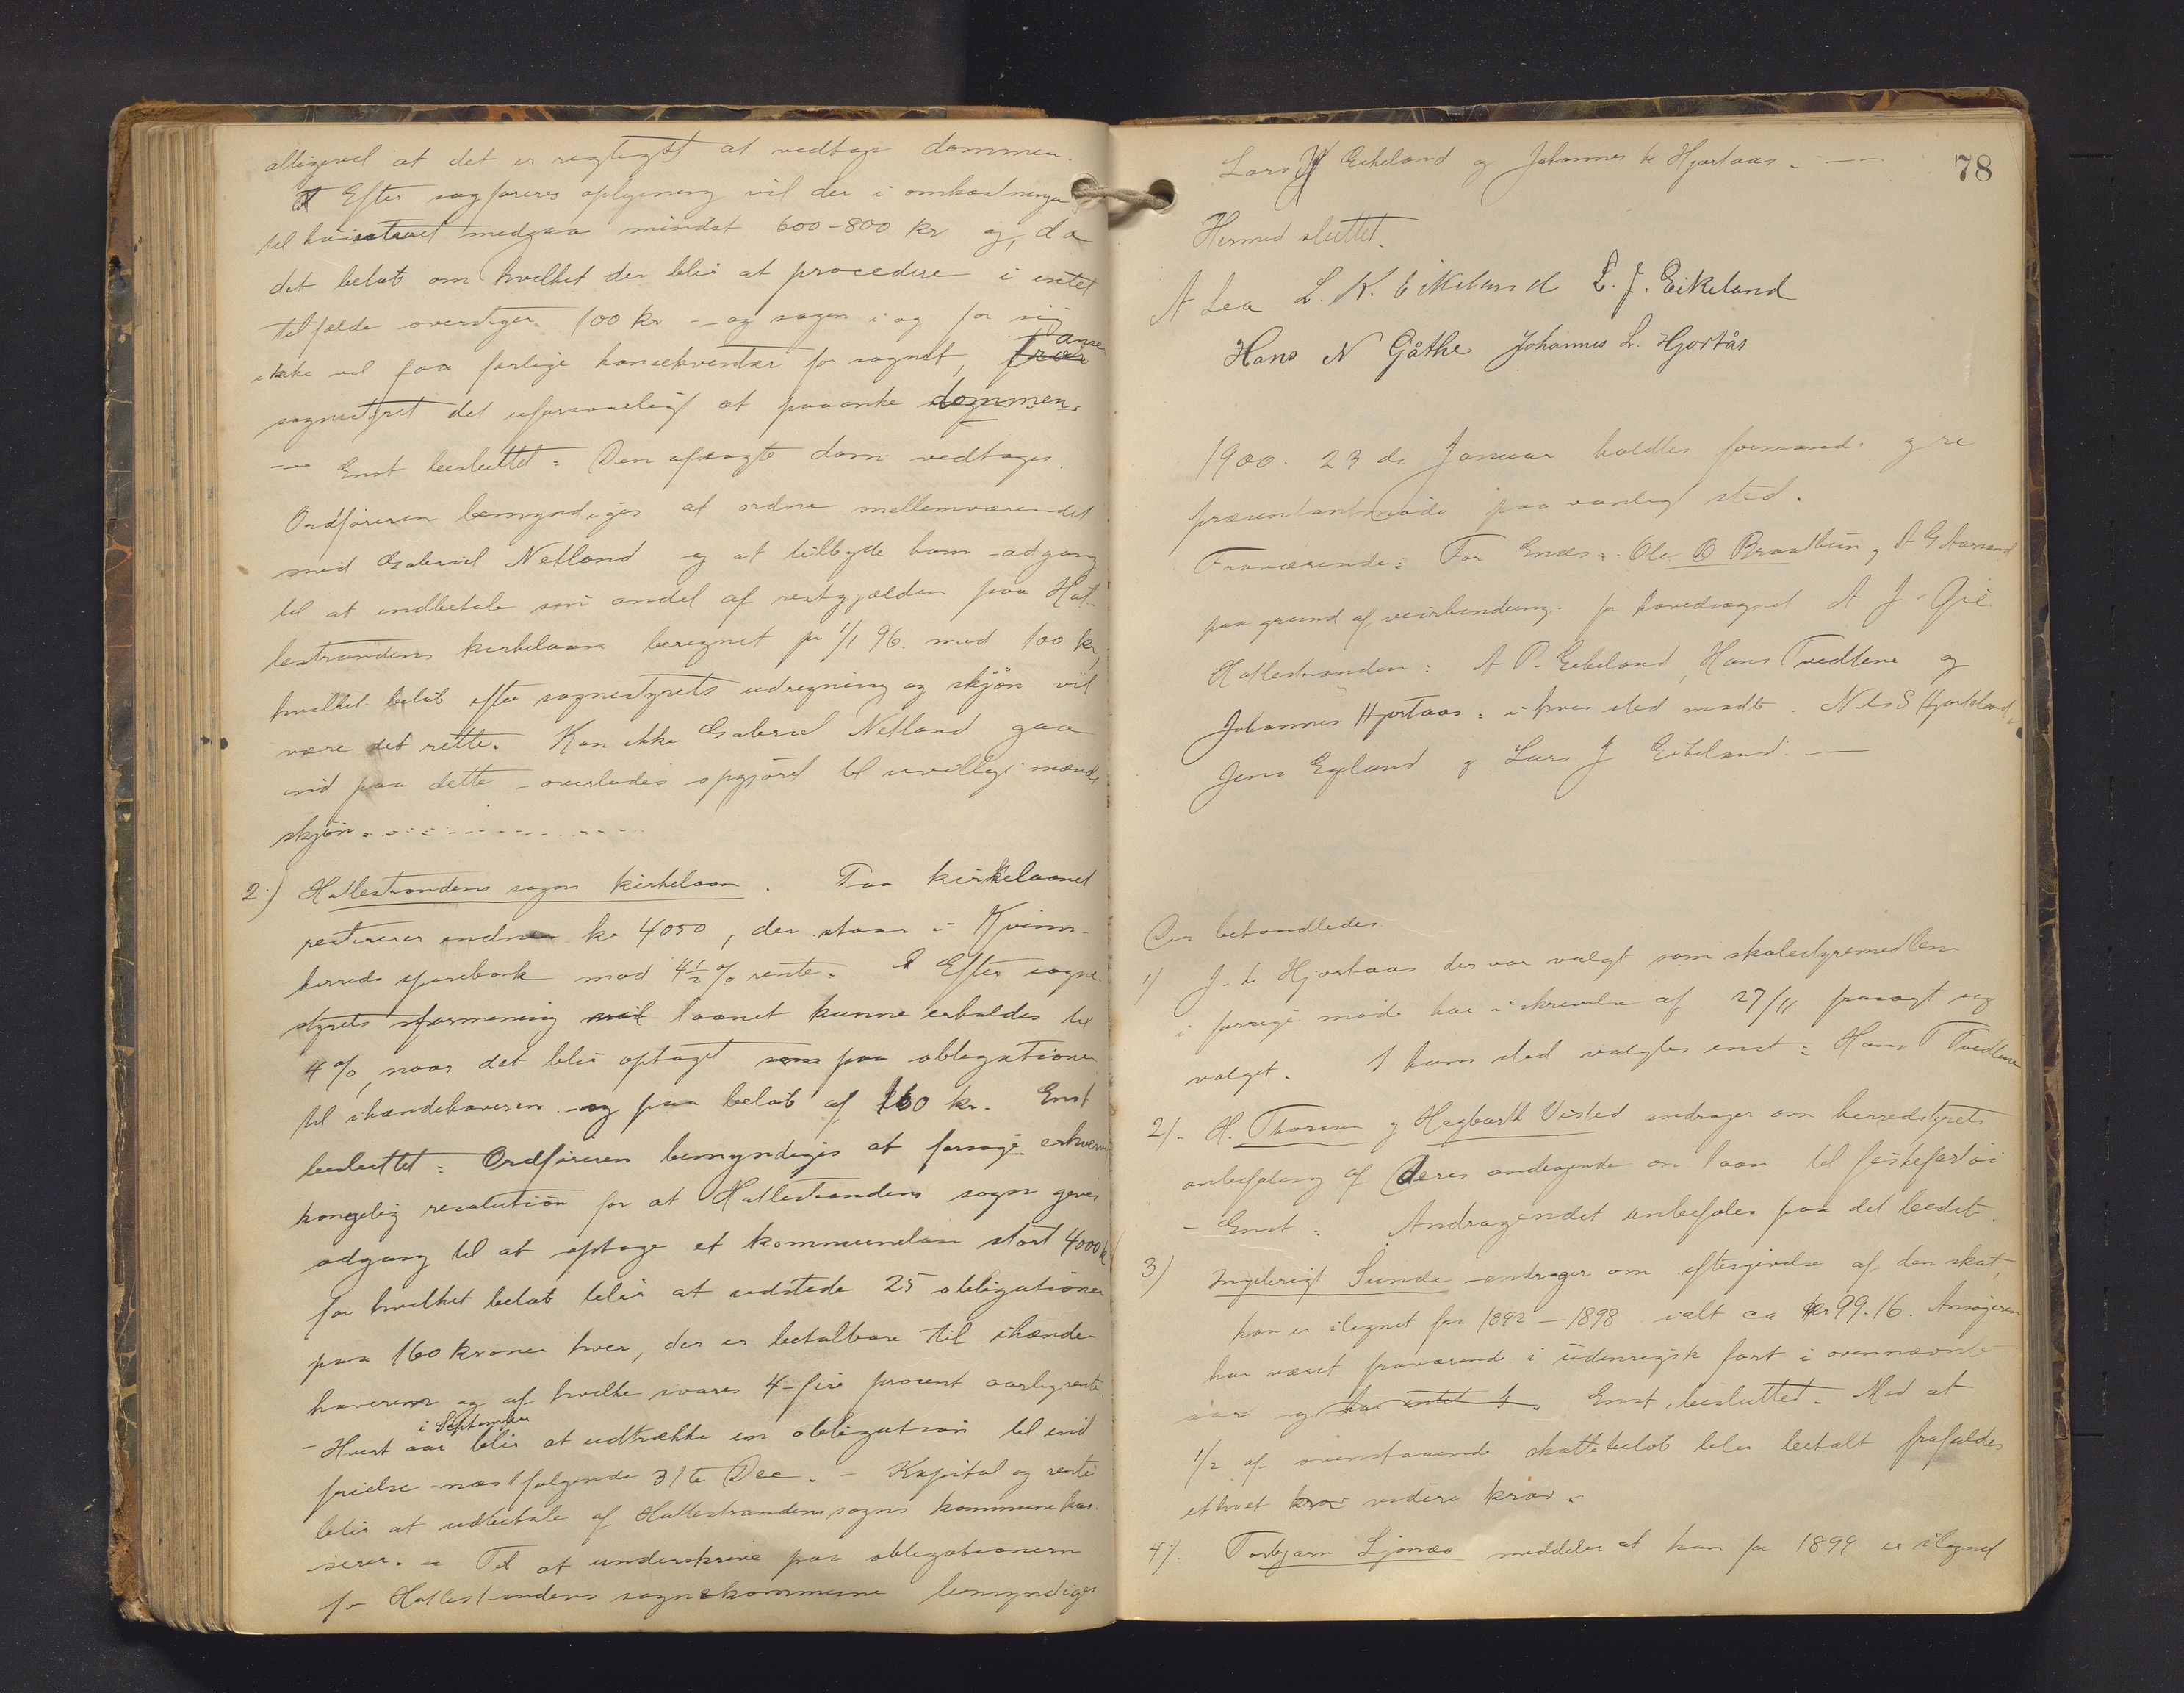 alligevel at det er rigtigst at vedtage dommen.
Efter sagførers oplysning vil der i omkostninger
til høiesteret medgaa mindst 600-800 kr og, da
det beløb om hvilket der blir at procedere i intet
tilfælde overstiger 100 kr – og sagen i og for sig
ikke vil faa farlige konsekventser for sognet, anser
sognestyret det uforsvarligt at paaanke dommen.
— Enst besluttet: Den afsagte dom vedtages.
Ordføreren bemyndiges at ordne mellemværendet
med Gabriel Netland og at tilbyde ham adgang
til at indbetale sin andel af restgjælden paa Hat-
lestrandens kirkelaan beregnet pr 1/1 96 med 100 kr,
hvilket beløb efter sognestyrets udregning og skjøn vil
være det rette. Kan ikke Gabriel Netland gaa
ind paa dette – overlades opgjøret til uvillige mænds
skjøn.
2.) Hatlestrandens sogns kirkelaan. Paa kirkelaanet
resterer endnu kr 4050, der staar i Kvinn-
herreds sparebank mod 4½ % rente. Efter sogne-
styrets formening vil laanet kunne erholdes til
4 %, naar det blir optaget paa obligationer
til ihændehaveren og paa beløb af 160 kr. Enst
besluttet: Ordføreren bemyndiges at forsøge erhverve
kongelig resolution for at Hatlestrandens sogn gives
adgang til at optage et kommunelaan stort 4000 kr
for hvilket beløb blir at udstede 25 obligationer
paa 160 kroner hver, der er betalbare til ihænde-
haveren og af hvilke svares 4-fire procent aarlig rente.
i September
– Hvert aar blir at udtrække en obligation til ind-
frielse næstfølgende 31te Dec. – Kapital og rente
blir at udbetale af Hatlestrandens sogns kommunekas-
serer. – Til at underskrive paa obligationerne
for Hatlestrandens sognekommune bemyndiges
78
Lars J Eikeland og Johannes L Hjortaas. —
Hermed sluttet.
A Lea L. K. Eikeland L. J. Eikeland
Hans N Gåthe Johannes L. Hjortås
1900. 23de Januar holdtes formand- og re
præsentantmøde paa vanligt sted.
Fraværende: For Enæs: Ole O Braatbun, A G Aarsand
paa grund af veirhindring. for hovedsognet A J
Hatlestranden: A P. Eikeland, Hans Tvedtene og
Johannes Hjortaas: i hvis sted mødte Nils S Hjortland,
Jens Egeland og Lars J Eikeland. —
Der behandledes
1) J. L Hjortaas der var valgt som skolestyremedlem
i forrige møde har i skrivelse af 27/11 frasagt sig
valget. I hans sted valgtes enst: Hans Tvedtene
2). H. Thorsen og Hagbarth Visted andrager om herredstyrets
anbefaling af deres andragende om laan til fiskefartøi
– Enst: Andragendet anbefales paa det bedste.
3) Ingebrigt Sunde andrager om eftergivelse af den skat,
han er ilignet fra 1892 – 1898 ialt ca kr 99.16. Ansøgeren
har været fraværende i udenrigsk fart i ovennævnte
aar og har intet. Enst besluttet. Mod at
1/2 af ovenstaaende skattebeløb blir betalt frafaldes
ethvert krav videre krav.
4). Torbjørn Ljonæs meddeler at han for 1899 er ilignet